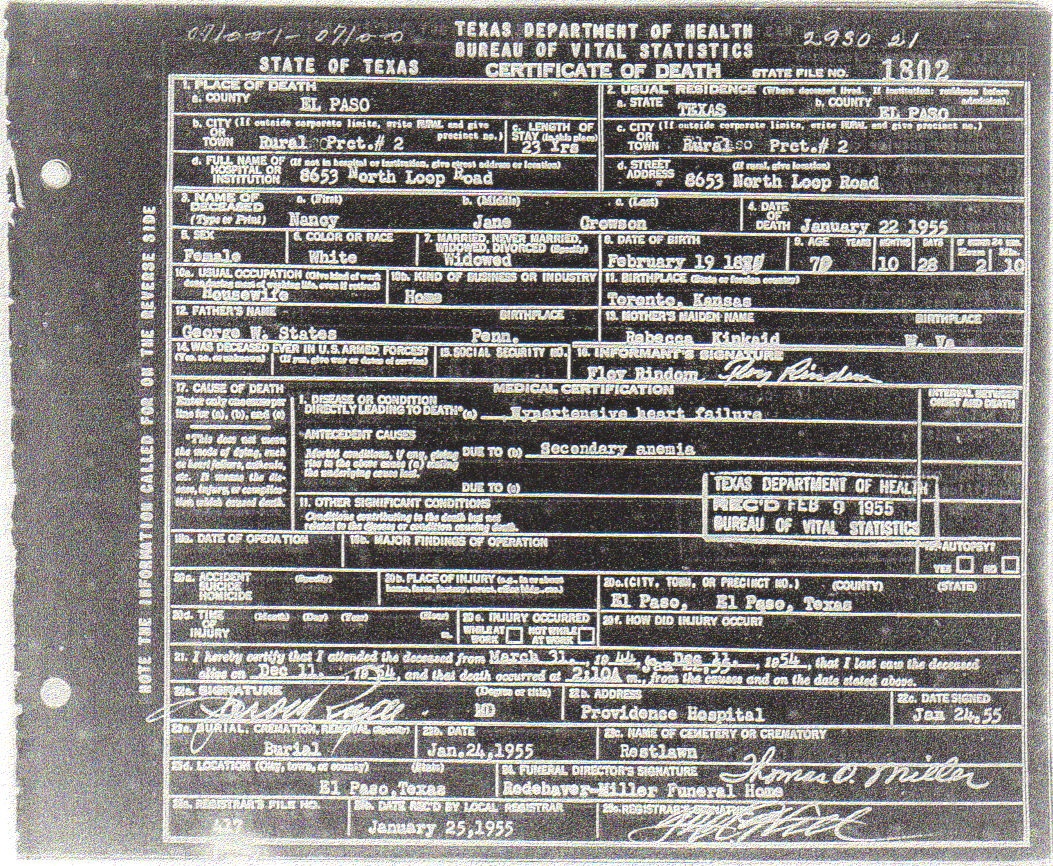 07/001-07/00
TEXAS DEPARTMENT OF HEALTH
BUREAU OF VITAL STATISTICS
2930 21
STATE OF TEXAS
CERTIFICATE OF DEATH
STATE FILE NO. 1802
1. PLACE OF DEATH
a. COUNTY
EL PASO
2. USUAL RESIDENCE (Where deceased lived. If institution: residence before admission).
a. STATE
TEXAS
b. COUNTY
EL PASO
b. CITY (If outside corporate limits, write RURAL and give precinct no.)
OR
TOWN
Rural Prct.# 2
c. LENGTH OF
STAY (in this place)
23 Yrs
c. CITY (If outside corporate limits, write RURAL and give precinct no.)
OR
TOWN
Rural Prct.# 2
d. FULL NAME OF (If not in hospital or institution, give street address or location)
HOSPITAL OR
INSTITUTION
8653 North Loop Road
d. STREET
ADDRESS
(If rural, give location)
8653 North Loop Road
3. NAME OF
DECEASED
(Type or Print)
a. (First)
Nancy
b. (Middle)
Jane
c. (Last)
Crowson
4. DATE
OF
DEATH
January 22 1955
5. SEX
Female
6. COLOR OR RACE
White
7. MARRIED, NEVER MARRIED,
WIDOWED, DIVORCED (Specify)
Widowed
8. DATE OF BIRTH
February 19
9. AGE YEARS MONTHS DAYS IF UNDER 24 HRS. Hours Min.
10 28 2 10
10a. USUAL OCCUPATION (Give kind of work
done during most of working life, even if retired)
Housewife
10b. KIND OF BUSINESS OR INDUSTRY
Home
11. BIRTHPLACE (State or foreign country)
Toronto. Kansas
12. FATHER'S NAME
BIRTHPLACE
George W. States
Penn.
13. MOTHER'S MAIDEN NAME
BIRTHPLACE
Rebecca Kinkaid
W. Va
14. WAS DECEASED EVER IN U.S. ARMED FORCES?
(Yes, no, or unknown) (If yes, give war or dates of service)
15. SOCIAL SECURITY NO.
16. INFORMANT'S SIGNATURE
Floy Rindom Floy Rindom
17. CAUSE OF DEATH
Enter only one cause per
line for (a), (b), and (c)
*This does not mean
the mode of dying, such
as heart failure, asthenia,
etc. It means the dis-
ease, injury, or complica-
tion which caused death.
MEDICAL CERTIFICATION
INTERVAL BETWEEN
ONSET AND DEATH
I. DISEASE OR CONDITION
DIRECTLY LEADING TO DEATH* (a) Hypertensive heart failure
ANTECEDENT CAUSES
Morbid conditions, if any, giving
rise to the above cause (a) stating
the underlying cause last.
DUE TO (b) Secondary anemia
DUE TO (c)
II. OTHER SIGNIFICANT CONDITIONS
Conditions contributing to the death but not
related to the disease or condition causing death.
TEXAS DEPARTMENT OF HEALTH
REC'D FEB 9 1955
BUREAU OF VITAL STATISTICS
19a. DATE OF OPERATION
19b. MAJOR FINDINGS OF OPERATION
AUTOPSY?
YES NO
20a. ACCIDENT
SUICIDE
HOMICIDE
(Specify)
20b. PLACE OF INJURY (e.g., in or about
home, farm, factory, street, office bldg., etc.)
20c. (CITY, TOWN, OR PRECINCT NO.) (COUNTY) (STATE)
El Paso, El Paso, Texas
20d. TIME
OF
INJURY
(Month) (Day) (Year) (Hour)
m.
20e. INJURY OCCURRED
WHILE AT
WORK
NOT WHILE
AT WORK
20f. HOW DID INJURY OCCUR?
21. I hereby certify that I attended the deceased from March 31, 1944, to Dec 11, 1954, that I last saw the deceased
alive on Dec 11, 1954, and that death occurred at 2:10A m., from the causes and on the date stated above.
22a. SIGNATURE
(Degree or title)
MD
22b. ADDRESS
Providence Hospital
22c. DATE SIGNED
Jan 24,55
23a. BURIAL, CREMATION, REMOVAL (Specify)
Burial
23b. DATE
Jan.24,1955
23c. NAME OF CEMETERY OR CREMATORY
Restlawn
23d. LOCATION (City, town, or county) (State)
El Paso,Texas
24. FUNERAL DIRECTOR'S SIGNATURE
Thomas O. Miller
Redehaver-Miller Funeral Home
25a. REGISTRAR'S FILE NO.
417
25b. DATE REC'D BY LOCAL REGISTRAR
January 25,1955
25c. REGISTRAR'S SIGNATURE
NOTE THE INFORMATION CALLED FOR ON THE REVERSE SIDE